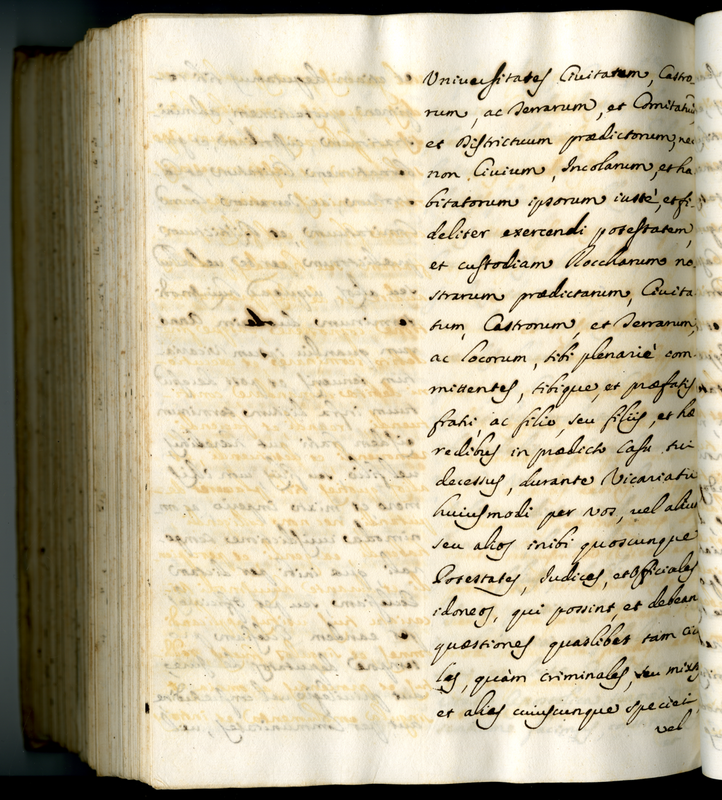 Universitates Civitatum, Castro
rum, ac Terrarum, et Comitatuũ
et Districtuum prædictorum, nec
non Civium, Incolarum, et ha
bitatorum ipsorum iustè, et fi-
deliter exercendi potestatem,
et custodiam Roccharum no
strarum prædictarum, Civita
tum, Castrorum, et Terrarum,
ac locorum, tibi plenariè com
mittentes, tibique, et præfatis
fratri, ac filio, seu filiis, et hæ
redibus in prædicto casu tui
decessus, durante Vicariatu
huiusmodi per vos, vel alium
seu alios inibi quoscunque
Potestates, Iudices, et Officiales
idoneos, qui possint, et debeant
quæstiones quaslibet tam civi
les, quàm criminales, seu mixtas
et alies cuiuscunque speciei
vel